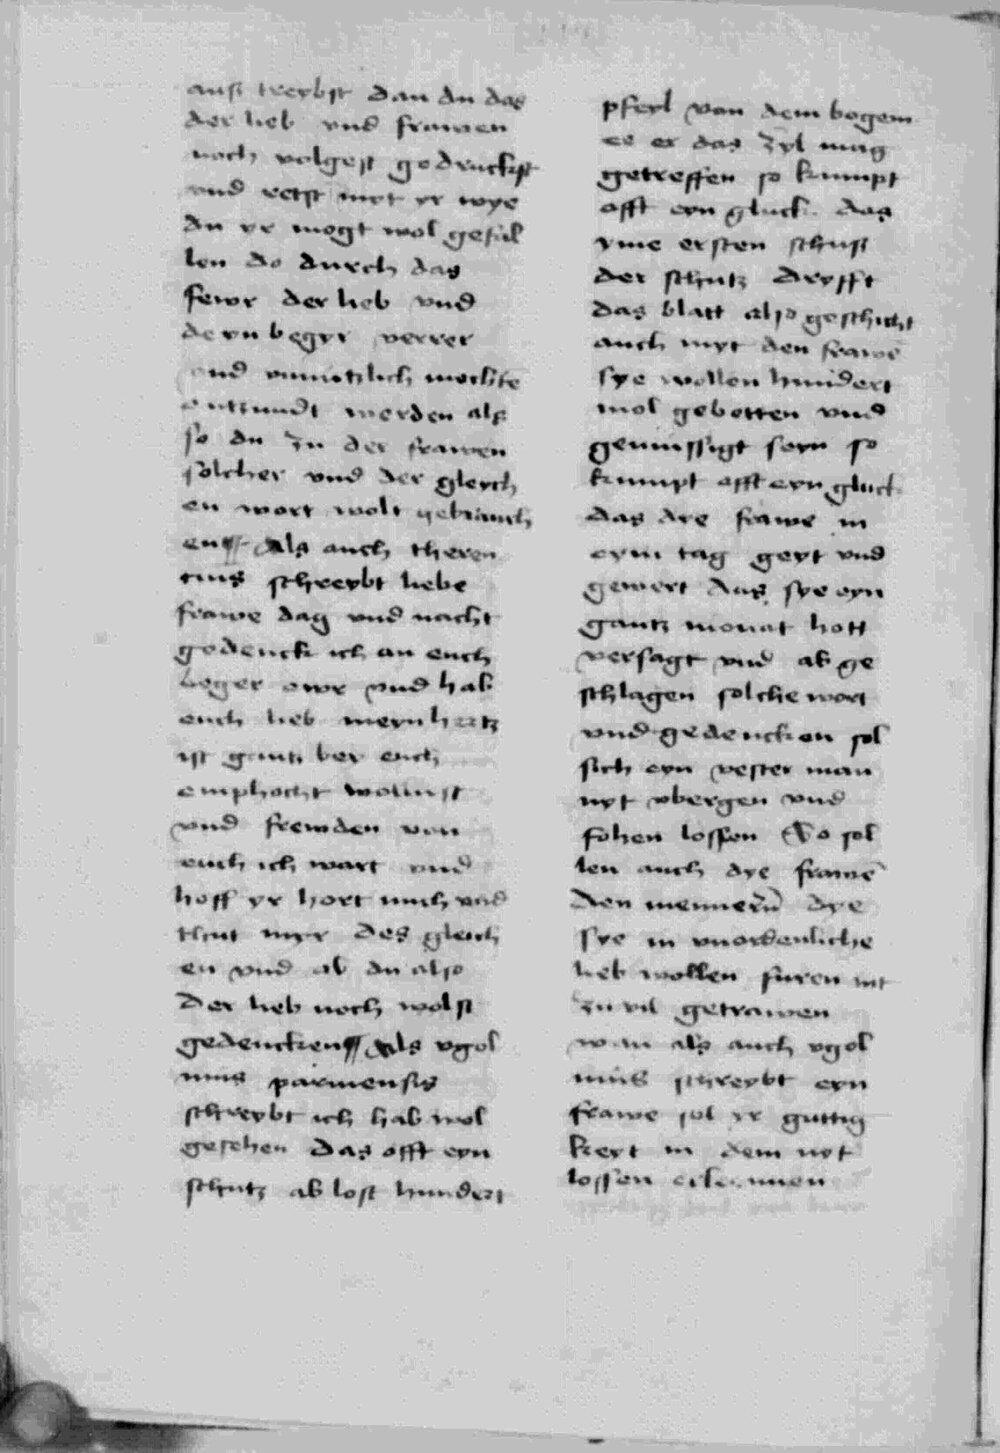 auß treybst dan du das
der lieb vnd frawen
noch volgest gedruckst
vnd retst myt yr wye
du yr mogt wol gefal
len do durch das
fewr der lieb vnd
deyn begyr verrer
vnd vnnutzlich mochte
entzundt werden als
so du zu der frawen
solcher vnd der gleych
en wort wolt gebrauch
en ¶ Als auch theren
tius schreybt liebe
frawe dag vnd nacht
gedenck ich an euch
beger ewr vnd hab
euch lieb meyn hertz
ist gantz bey euch
emphocht wollust
vnd frewden von
euch ich wart vnd
hoff yr hort mich vnd
thut myr des gleich
en vnd ab du also
der lieb noch wolst
gedencken ¶ Als vgol
inus parmensis
schreybt ich hab wol
gesehen das offt eyn
schutz ab lost hundert
pfeyl von dem bogem
ee er das zyl mag
getreffen so kumpt
offt eyn gluck das
yme ersten schuß
der schutz dryfft
das blatt also geschicht
auch myt den frawē
sye wollen hundert
mol gebetten vnd
genuissigt seyn so
kumpt offt eyn gluck
das dye frawe in
eym tag geyt vnd
gewert das sye eyn
gantz monat hott
versagt vnd ab ge
schlagen solche wort
vnd gedencken sol
sich eyn vester man
nyt vbergen vnd
fohen lossen So sol
len auch dye frawē
den mennern dye
sye in vnordenliche
lieb wollen furen nit
zu vil getrawen
wan als auch vgol
inus schreybt eyn
frawe sol yr guttig
keyt in dem nyt
lossen erkennen